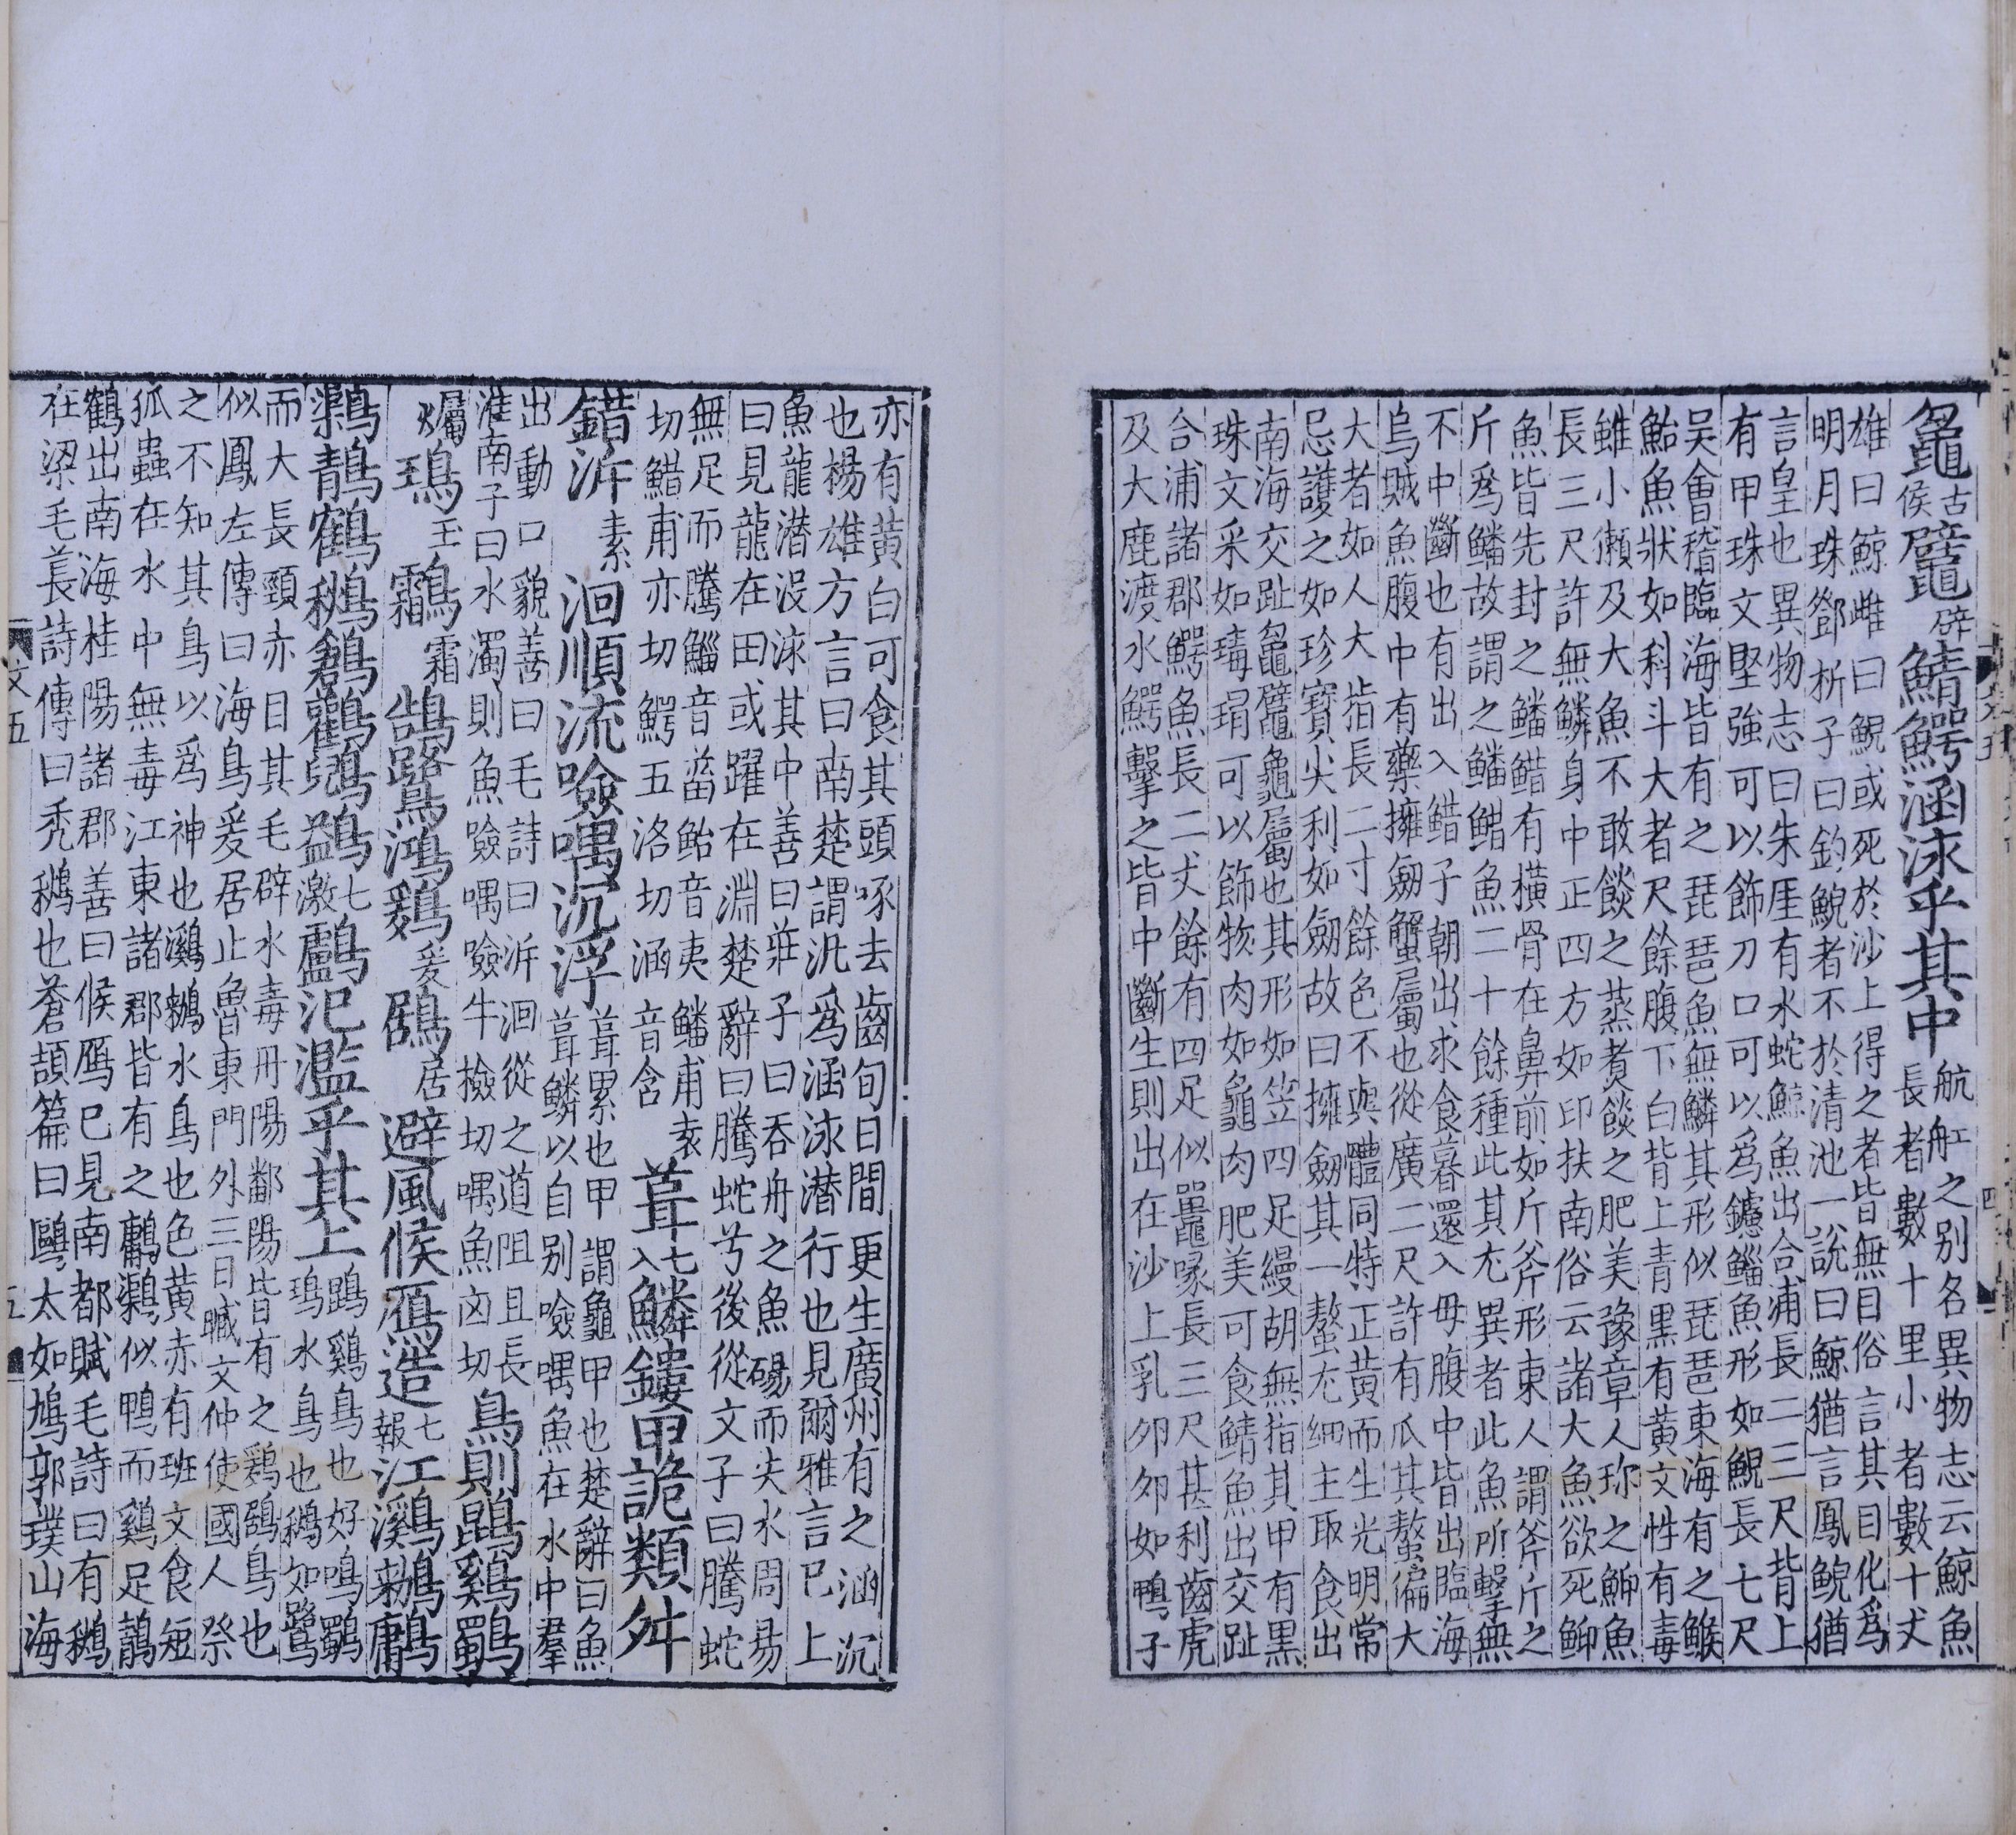 𪓟古侯鼊辟鯖鰐涵泳乎其中航舡之别名異物志云鯨魚
長者數十里小者數十丈
雄曰鯨雌曰鯢或死於沙上得之者皆無目俗言其目化爲
明月珠鄧析子曰釣鯢者不於清池一說曰鯨猶言鳳鯢猶
言皇也異物志曰朱厓有水蛇鯨魚出合浦長二三尺背上
有甲珠文堅強可以飾刀口可以爲鑢鯔魚形如鯢長七尺
吳會稽臨海皆有之琵琶魚無鱗其形似琵琶東海有之鯸
鮐魚狀如科斗大者尺餘腹下白背上青黑有黃文性有毒
雖小獺及大魚不敢餤之蒸煑餤之肥美豫章人珎之鮣魚
長三尺許無鱗身中正四方如印扶南俗云諸大魚欲死鮣
魚皆先封之鱕䱜有橫骨在鼻前如斤斧形東人謂斧斤之
斤爲鱕故謂之鱕䱜魚二十餘種此其尤異者此魚所擊無
不中斷也有出入䱜子朝出求食暮還入母腹中皆出臨海
烏賊魚腹中有藥擁劒蟹屬也從廣二尺許有爪其螯偏大
大者如人大指長二寸餘色不與體同特正黃而生光明常
忌護之如珍寶尖利如劒故曰擁劒其一螯尤細主取食出
南海交趾𪓟鼊龜屬也其形如笠四足縵胡無指其甲有黑
珠文采如瑇瑁可以飾物肉如龜肉肥美可食鯖魚出交趾
合浦諸郡鰐魚長二丈餘有四足似鼉喙長三尺甚利齒虎
及大鹿渡水鰐擊之皆中斷生則出在沙上乳卵卵如鴨子
亦有黃白可食其頭啄去齒旬日間更生廣州有之涵沉
也楊雄方言曰南楚謂沉爲涵泳潜行也見爾雅言已上
魚龍潜沒泳其中善曰莊子曰吞舟之魚碭而失水周昜
曰見龍在田或躍在淵楚辭曰騰蛇兮後從文子曰騰蛇
無足而騰鯔音葘鮐音夷鱕甫袁
切䱜甫亦切鰐五洛切涵音含葺七入鱗鏤甲詭類舛
錯泝素洄順流噞喁沉浮葺葺累也甲謂龜甲也楚辭曰魚
葺鱗以自別噞喁魚在水中羣
出動口貌善曰毛詩曰泝洄從之道阻且長
淮南子曰水濁則魚噞喁噞牛檢切喁魚凶切鳥則鵾鷄鸀
𤏲鳿玉鸘霜鵠鷺鴻鷄爰鶋居避風候鴈造七報江鸂䳵鷛
𪆫鶄鶴鶖鶬鸛鷁鷁七激鸕氾濫乎其上鵾鷄鳥也好鳴鸀
鳿水鳥也鶖如鷺
而大長頸赤目其毛辟水毒丹陽鄱陽皆有之鷄鶋鳥也
似鳳左傳曰海鳥爰居止魯東門外三日臧文仲使國人祭
之不知其鳥以爲神也鸂䳵水鳥也色黃赤有班文食短
狐蟲在水中無毒江東諸郡皆有之鷛𪆫似鴨而鷄足鶄
鶴出南海桂陽諸郡善曰候鴈已見南都賦毛詩曰有鶖
在梁毛萇詩傳曰禿鶖也蒼頡篇曰鷗太如鳩郭璞山海
文五
五